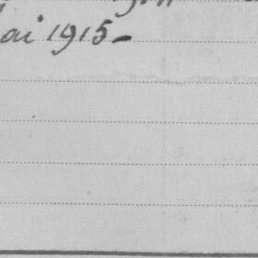 ai 1915-